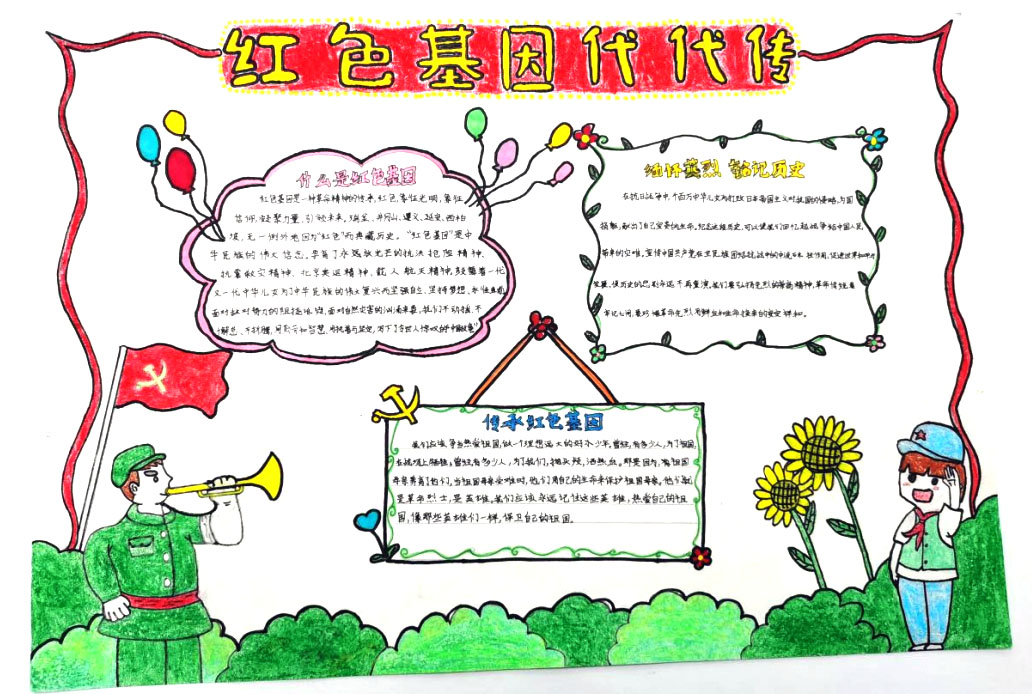 红色基因代代传
什么是红色基因
红色基因是一种革命精神的传承,红色象征光明,象征
信仰,凝聚力量,引领未来,瑞金、井冈山、遵义、延安、西柏
坡,无一例外地因为“红色”而典藏历史。“红色基因”是中
华民族的伟大信念,孕育了永远放光芒的抗洪抢险精神、
抗震救灾精神、北京奥运精神、载人航天精神,鼓舞着一代
又一代中华儿女为了中华民族的伟大复兴而坚强自立、坚持梦想、
面对敌对势力的阻挠 面对自然灾害的汹涌来袭,我们不动摇、不
懈怠、不折腾,用 和智慧, 写下了令世人惊叹的“中国故事”
缅怀英烈 铭记历史
在抗日战争中,千百万中华儿女为打败日本帝国主义对祖国的侵略,为国
捐躯,献出了自己宝贵的生命。纪念这段历史,可以使我们回忆起战争给中国人民
带来的灾难,宣传中国共产党在全民族团结抗战中的中流砥柱作用,促进世界和平与
发展,让历史的悲剧永远不再重演,我们要弘扬先烈的崇高精神,革命传统要
牢记心间,要珍惜革命先烈用鲜血和生命换来的安定祥和。
传承红色基因
我们应该争当热爱祖国,做一个理想远大的好少年,曾经,有多少人,为了祖国,
在战场上牺牲;曾经,有多少人,为了我们,抛头颅,洒热血。那是因为,有祖国
母亲养育了他们,当祖国母亲受难时,他们用自己的生命来保护祖国母亲,他们就
是革命烈士,是英雄。我们应该永远记住这些英雄,热爱自己的祖
国,像那些英雄们一样,保卫自己的祖国。